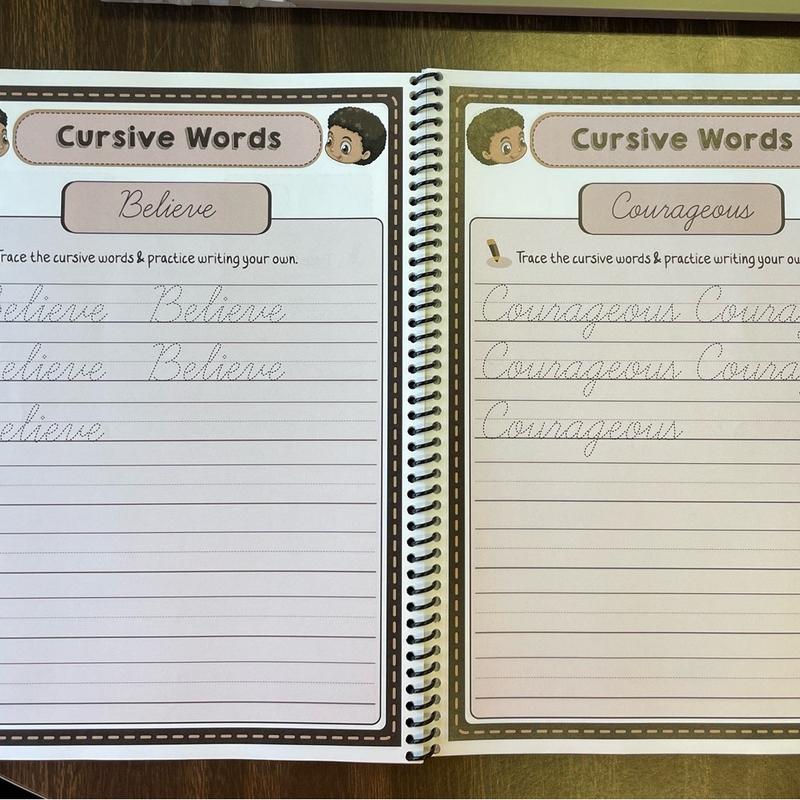 Cursive Words
Believe
Trace the cursive words & practice writing your own.
Believe Believe
Believe Believe
Believe
Cursive Words
Courageous
Trace the cursive words & practice writing your
Courageous
Courageous
Courageous